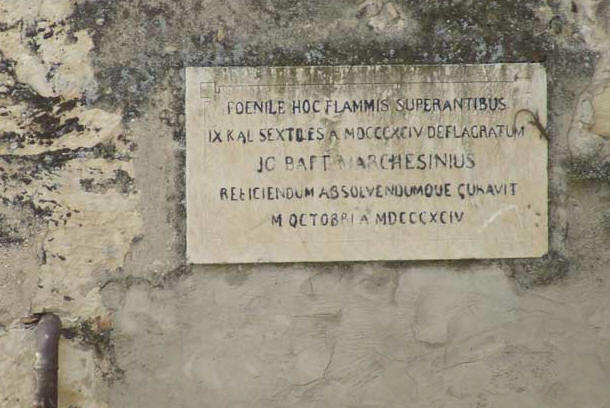 FOENILE HOC FLAMMIS SUPERANTIBUS
IX KAL SEXTILES A MDCCCXCIV DEFLAGRATUM
JO BAPT MARCHESINIUS
REFICIENDUM ABSOLVENDUMQUE CURAVIT
M OCTOBRI A MDCCCXCIV